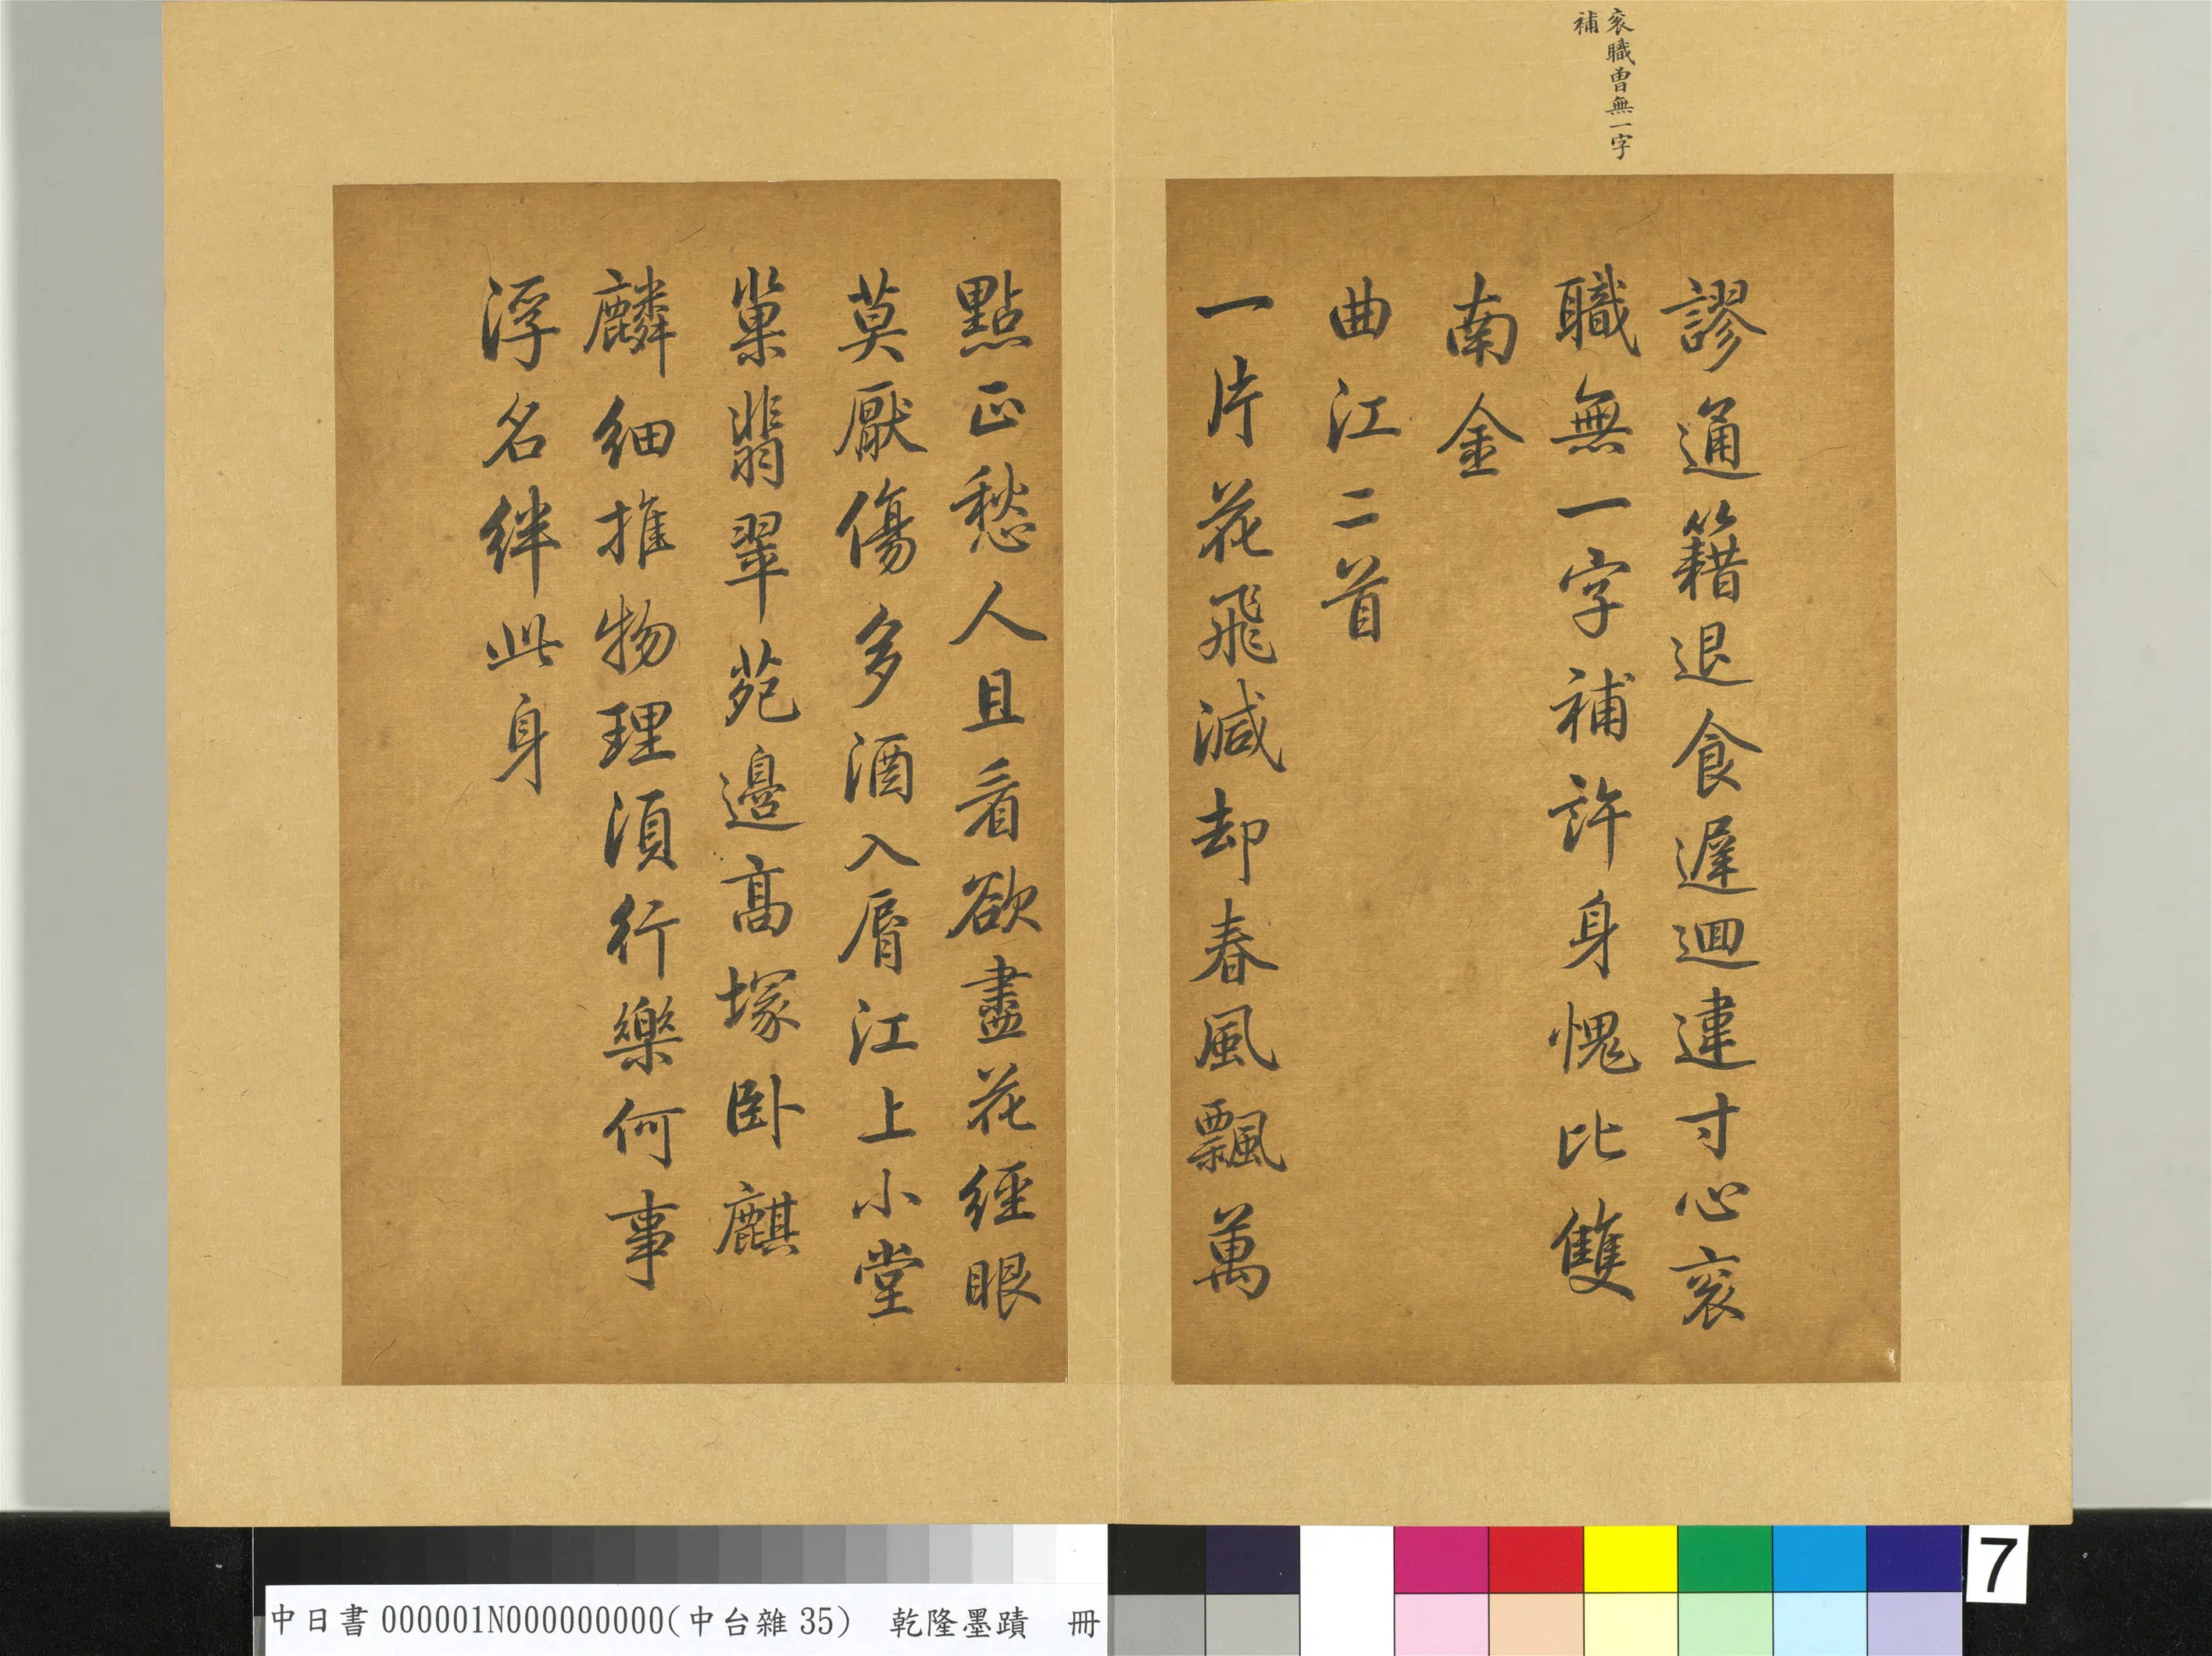 衮職曾無一字
補
謬通籍退食遲迴違寸心衮
職無一字補許身愧比雙
南金
曲江二首
一片花飛減却春風飄萬
點正愁人且看欲盡花經眼
莫厭傷多酒入脣江上小堂
巢翡翠苑邊高塚卧麒
麟細推物理湏行樂何事
浮名絆此身
中日書000001N000000000(中台雜35) 乾隆墨蹟 冊
7